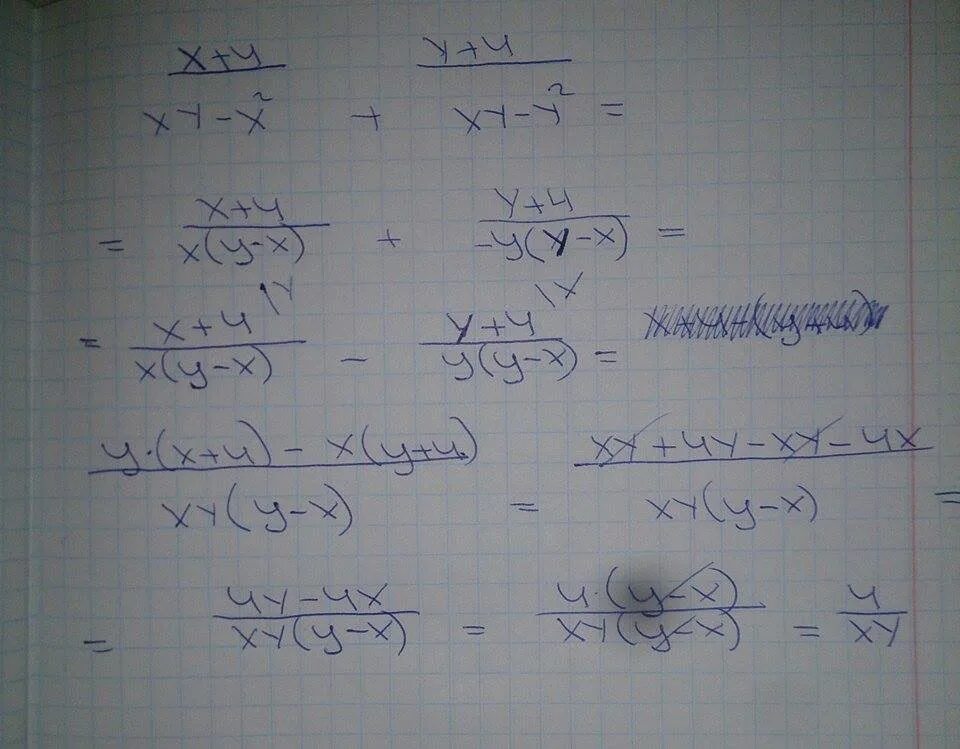 x+4/xy-x² + y+4/xy-y² =
= x+4/x(y-x) + y+4/-y(y-x) =
= x+4/x(y-x) |y - y+4/y(y-x) |x =
y·(x+4)-x(y+4)/xy(y-x) = xy+4y-xy-4x/xy(y-x) =
= 4y-4x/xy(y-x) = 4·(y-x)/xy(y-x) = 4/xy